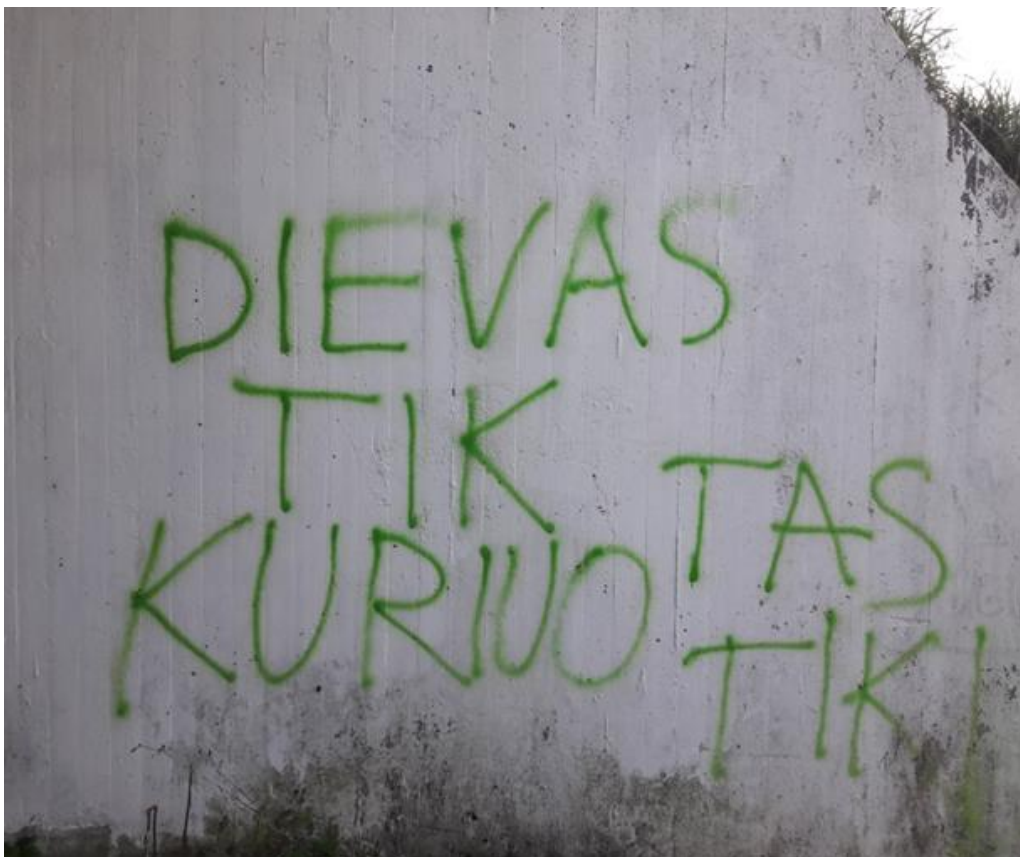 DIEVAS
TIK TAS
KURIUO TIKI